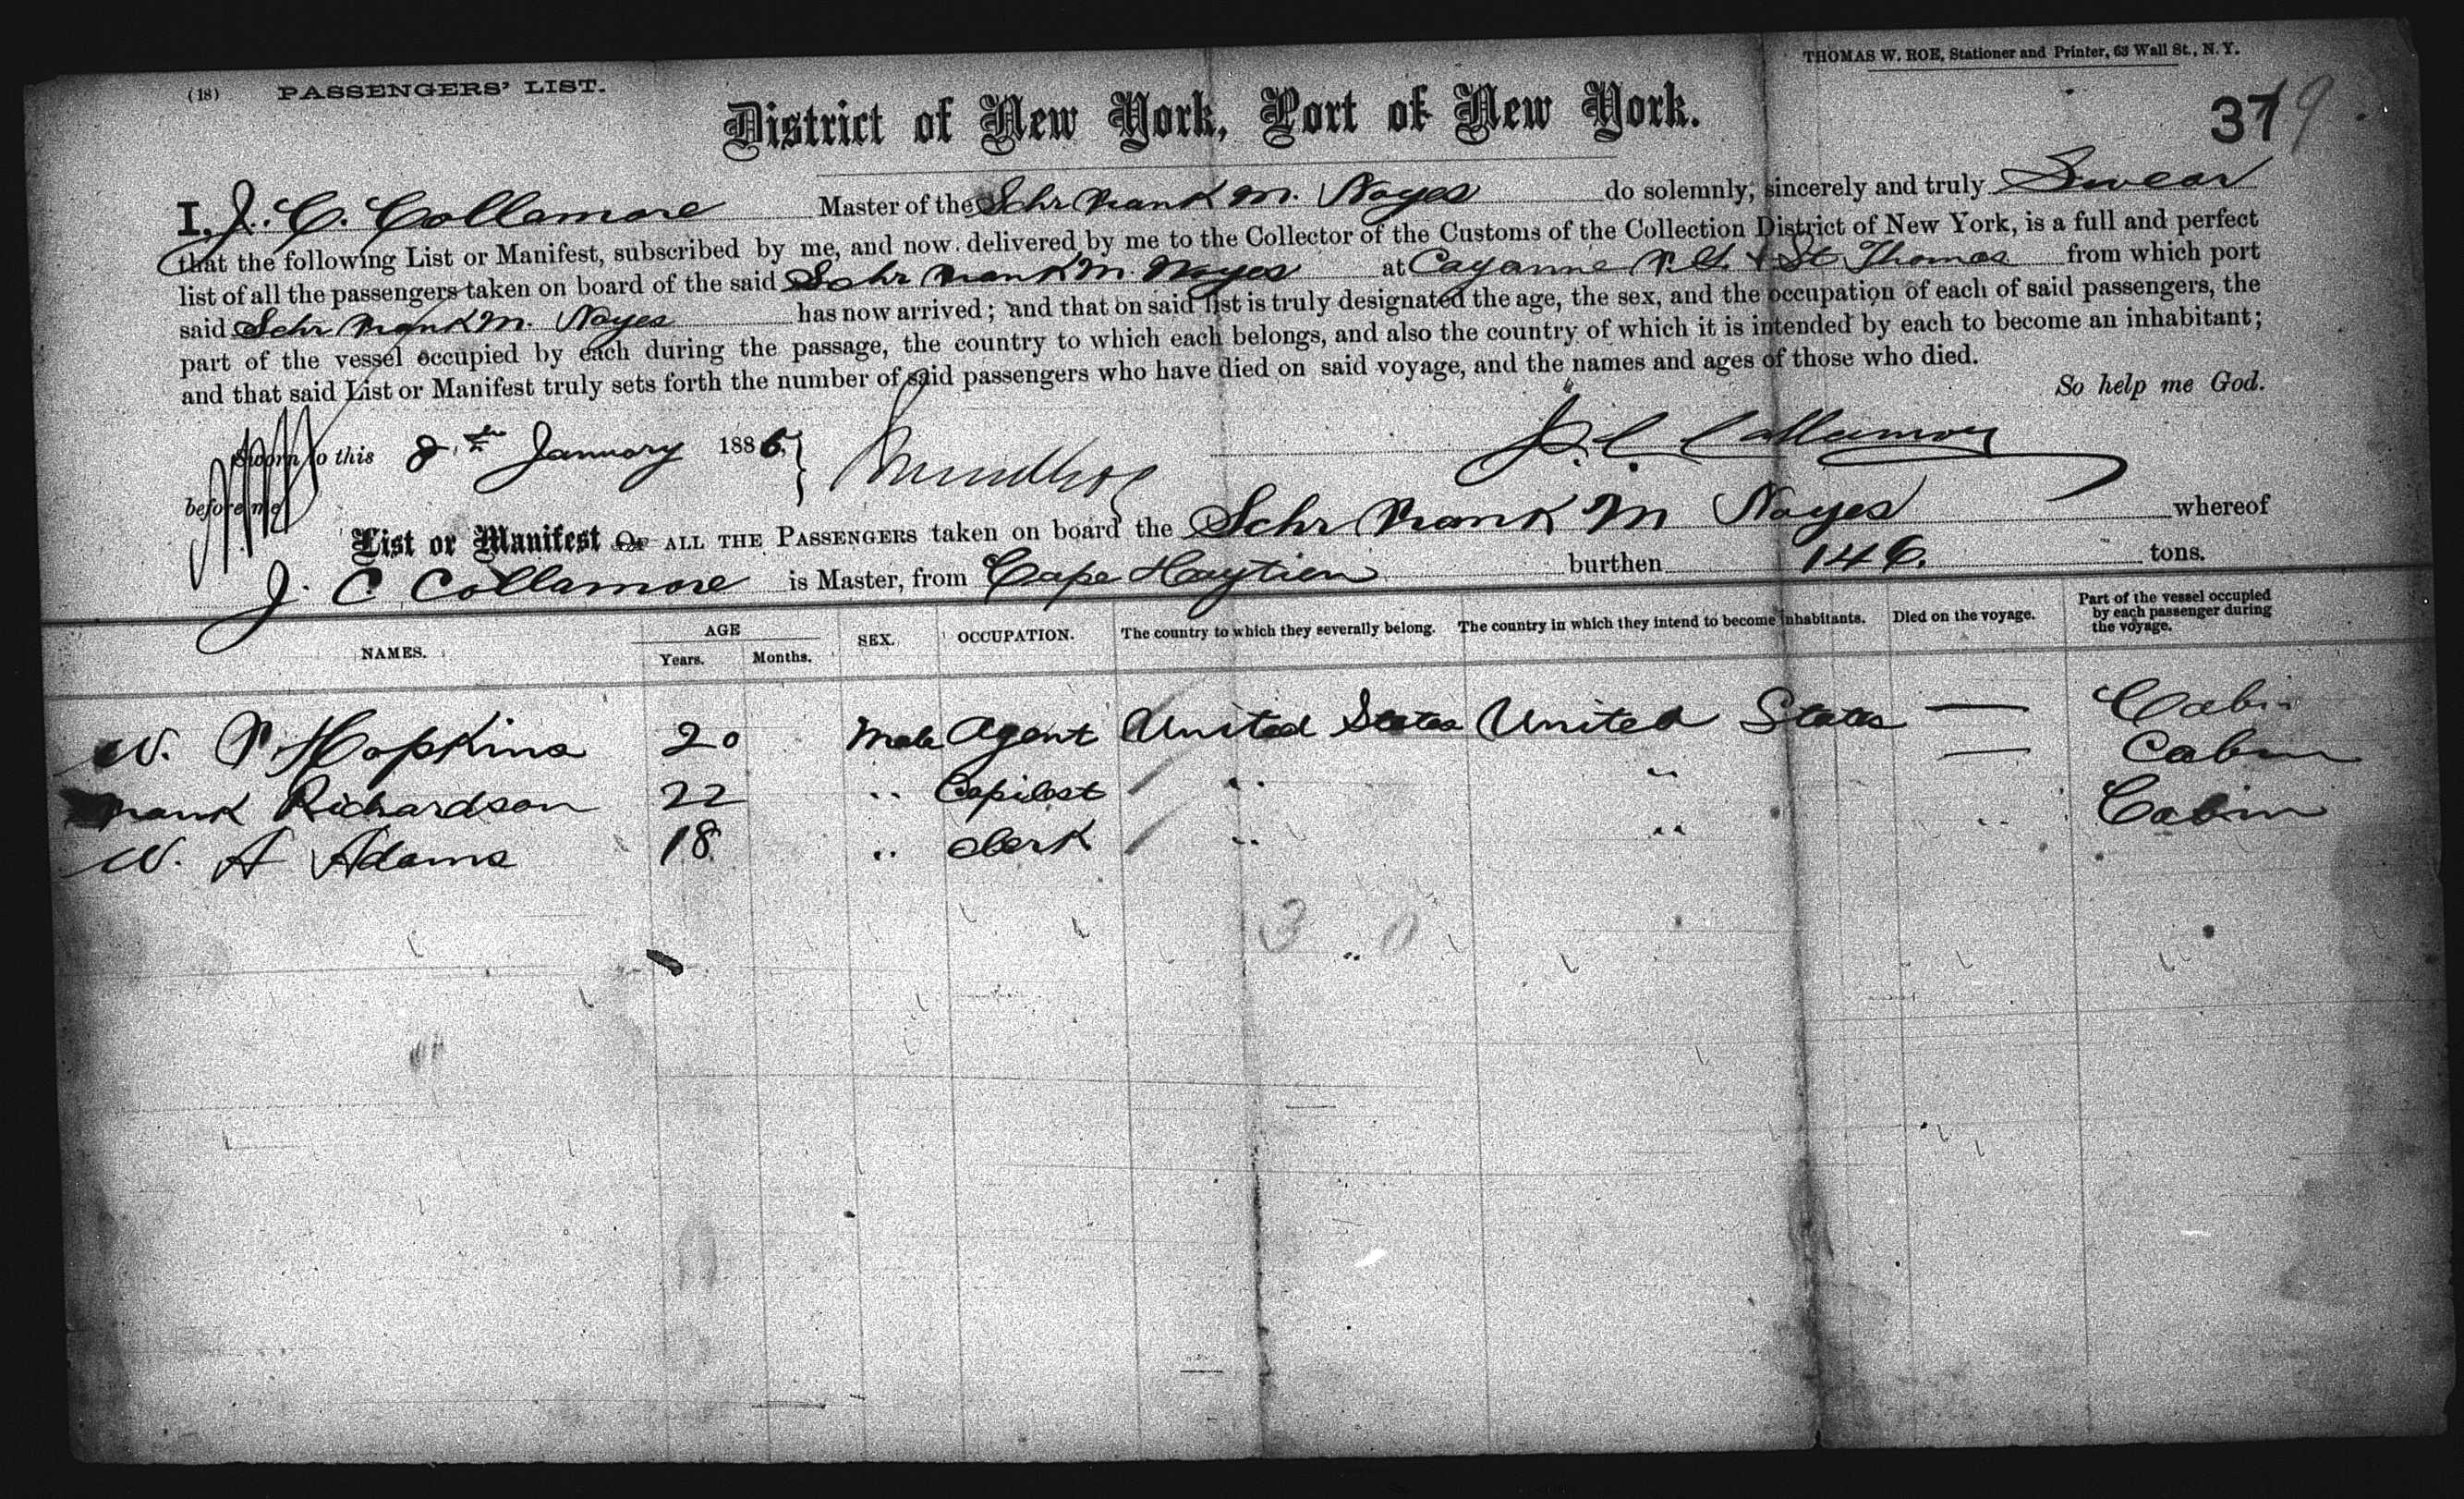 (18) PASSENGERS' LIST.
THOMAS W. ROE, Stationer and Printer, 63 Wall St., N.Y.
District of New York, Port of New York.
37 19
I, J. C. Collamore Master of the Schr Frank M. Noyes do solemnly, sincerely and truly Swear
that the following List or Manifest, subscribed by me, and now delivered by me to the Collector of the Customs of the Collection District of New York, is a full and perfect
list of all the passengers taken on board of the said Schr Frank M Noyes at Cayanne F.G. & St. Thomas from which port
said Schr Frank M. Noyes has now arrived; and that on said list is truly designated the age, the sex, and the occupation of each of said passengers, the
part of the vessel occupied by each during the passage, the country to which each belongs, and also the country of which it is intended by each to become an inhabitant;
and that said List or Manifest truly sets forth the number of said passengers who have died on said voyage, and the names and ages of those who died.
So help me God.
Sworn to this 8.th January 1886.
J. C. Collamore
before me
List or Manifest OF ALL THE PASSENGERS taken on board the Schr Frank M Noyes whereof
J. C Collamore is Master, from Cape Haytien burthen 146. tons.
NAMES. AGE Years. Months. SEX. OCCUPATION. The country to which they severally belong. The country in which they intend to become inhabitants. Died on the voyage. Part of the vessel occupied by each passenger during the voyage.
W. P Hopkins 20 Male Agent United States United States — Cabin
Frank Richardson 22 " Copilest " " — Cabin
W. A Adams 18 " Clerk " " " Cabin
3 0